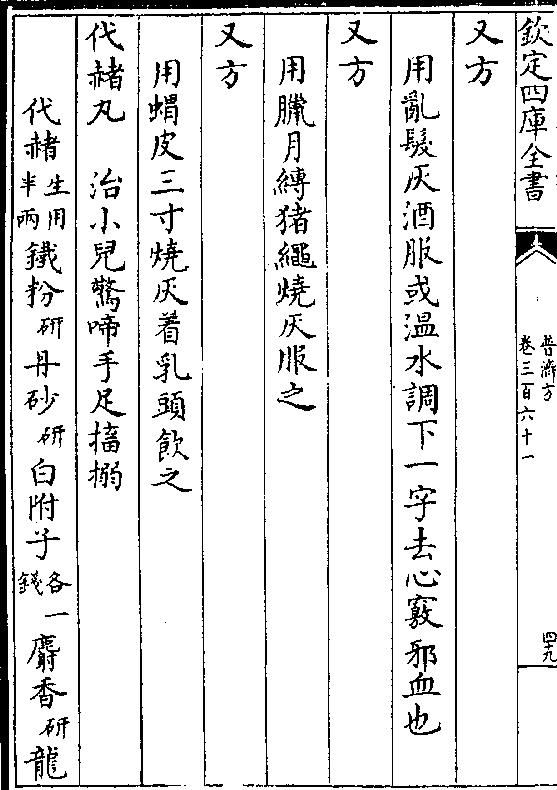 欽定四庫全書
普濟方
卷三百六十一
四十九
又方
用亂髮灰酒服或溫水調下一字去心竅邪血也
又方
用臘月縛猪繩燒灰服之
又方
用蝟皮三寸燒灰着乳頭飲之
代赭丸 治小兒驚啼手足搐搦
代赭生用半兩鐵粉研丹砂研白附子各一錢麝香研龍